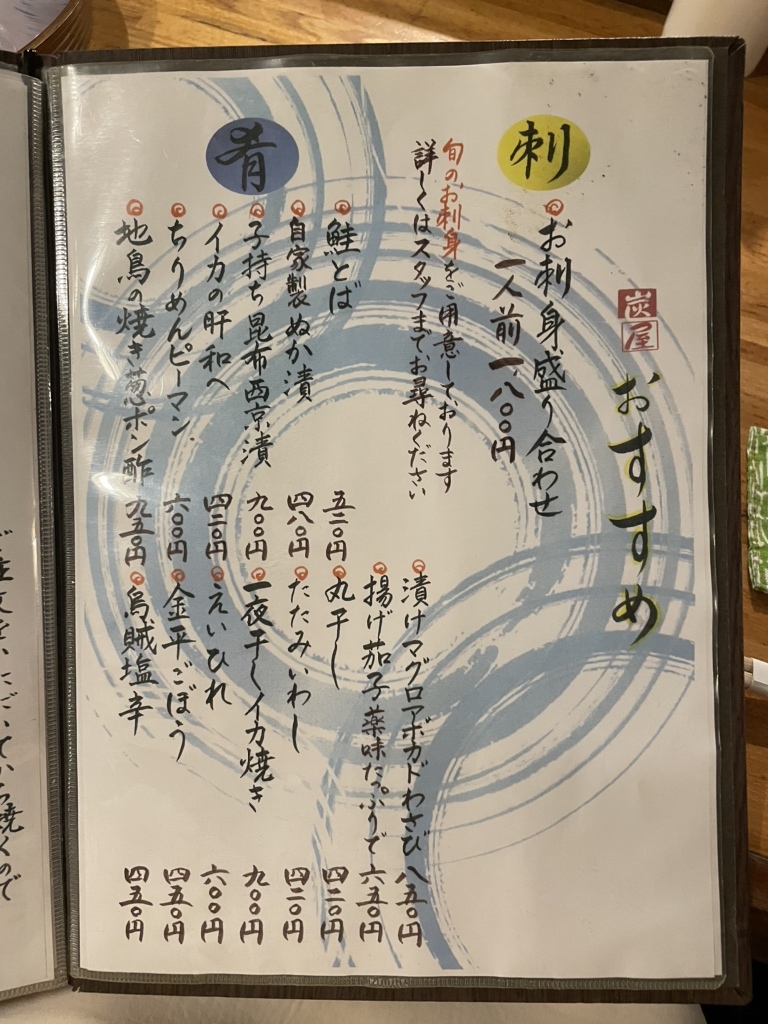 炭屋
おすすめ
刺
お刺身盛り合わせ
一人前 一、八〇〇円
旬のお刺身をご用意しております
詳しくはスタッフまでお尋ねください
肴
鮭とば 五二〇円
自家製ぬか漬 四八〇円
子持ち昆布西京漬 九〇〇円
イカの肝和へ 四二〇円
ちりめんピーマン 六〇〇円
地鳥の焼き葱ポン酢 九五〇円
漬けマグロアボカドわさび 八五〇円
揚げ茄子薬味たっぷりで 六五〇円
丸干し 四二〇円
たたみいわし 四二〇円
一夜干しイカ焼き 九〇〇円
えいひれ 六〇〇円
金平ごぼう 四五〇円
烏賊塩辛 四五〇円